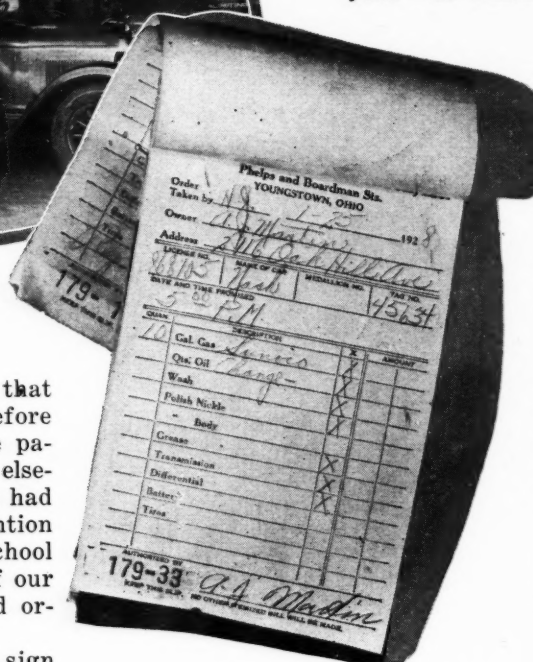 Phelps and Boardman Sts.
YOUNGSTOWN, OHIO
Order Taken by N.J. 1-25 1928
Owner A.J. Martin
Address 2416 Oak Hill Ave
LICENSE NO. MAKE OF CAR MEDALLION NO. TAG NO.
Nash 45634
DATE AND TIME PROMISED
5 00 P.M.
QUAN. DESCRIPTION X AMOUNT
10 Gal. Gas Sunoco X
Qts. Oil Change- X
Wash X
Polish Nickle X
" Body X
Grease
Transmission X
Differential X
Battery X
Tires
AUTHORIZED BY
179-33 A J Martin
KEEP THIS SLIP. NO OTHER WILL BE MADE.
179-
KEEP THIS SLIP.
that
efore
e pa-
else-
had
ntion
chool
f our
d or-
sign